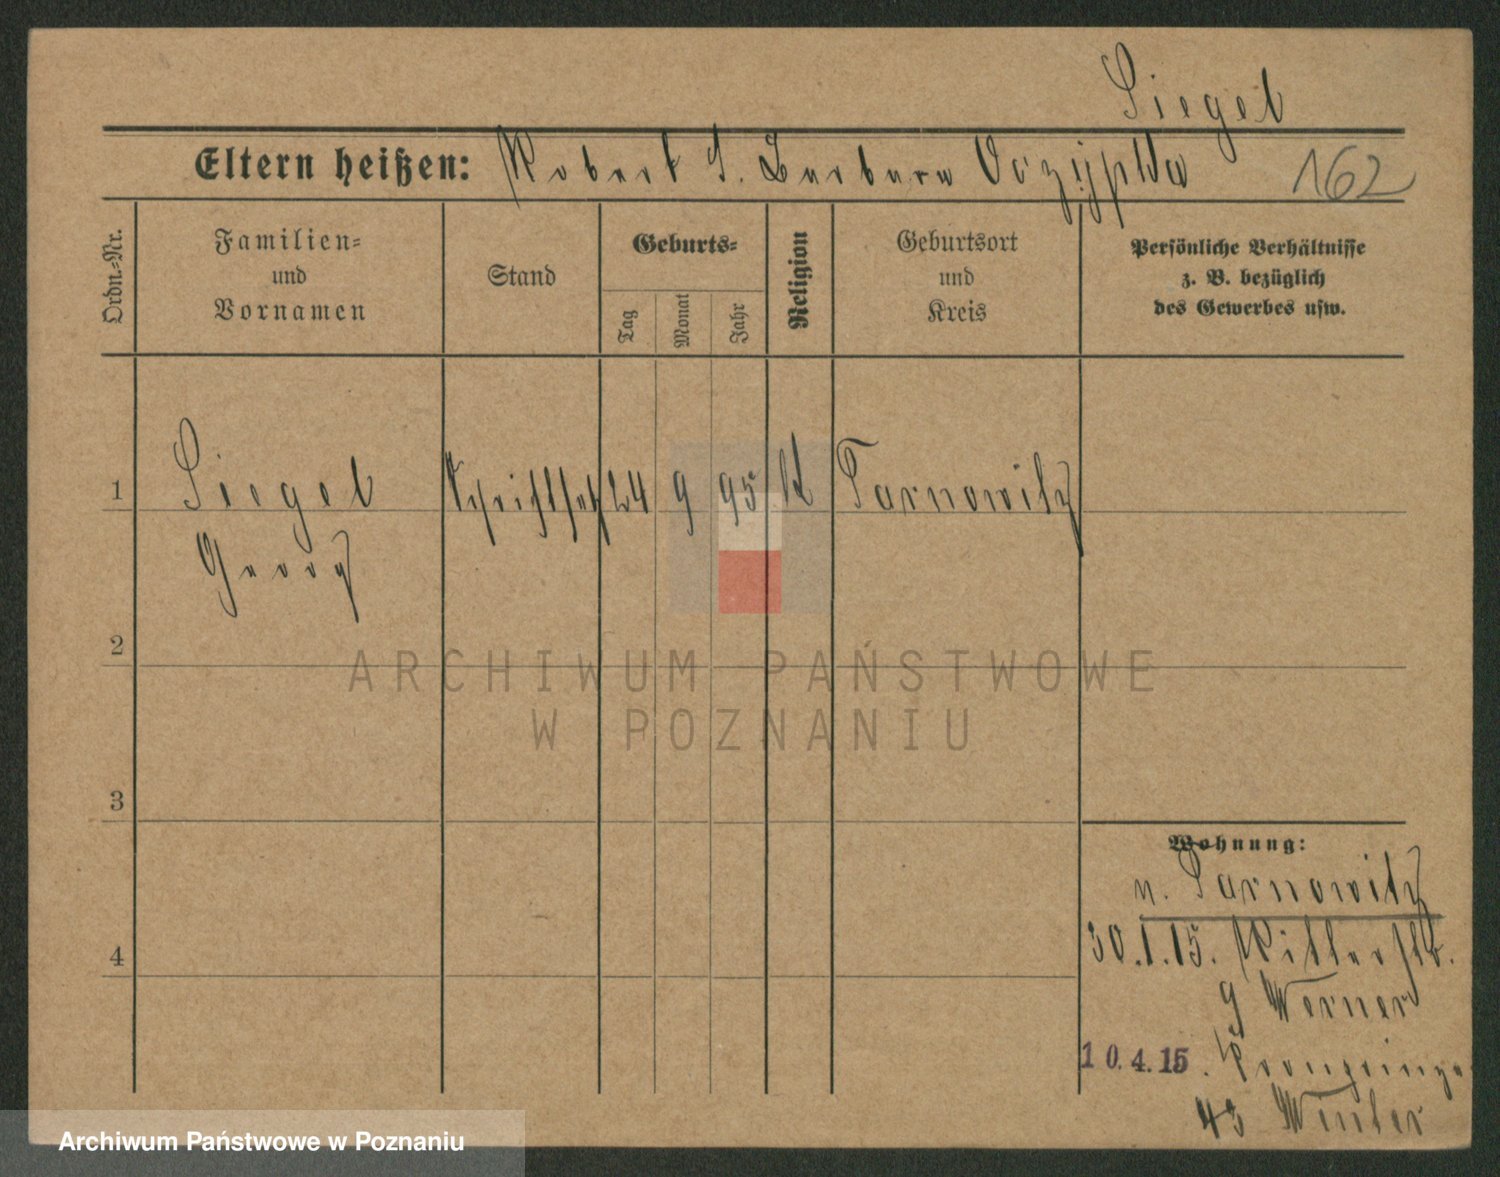 Siegel
Eltern heißen: Robert S. Barbara
162
Ordn.-Nr.
Familien-
und
Vornamen
Stand
Geburts-
Tag
Monat
Jahr
Religion
Geburtsort
und
Kreis
Persönliche Verhältnisse
z. B. bezüglich
des Gewerbes usw.
1 Siegel Schriftsetz 24 9 95 K Tarnowitz
Georg
2
ARCHIWUM PAŃSTWOWE
W POZNANIU
3
4
Wohnung:
n. Tarnowitz
30.1.15. Ritterstr.
9 Werner
10.4.15. Kronprinz
Winter
Archiwum Państwowe w Poznaniu